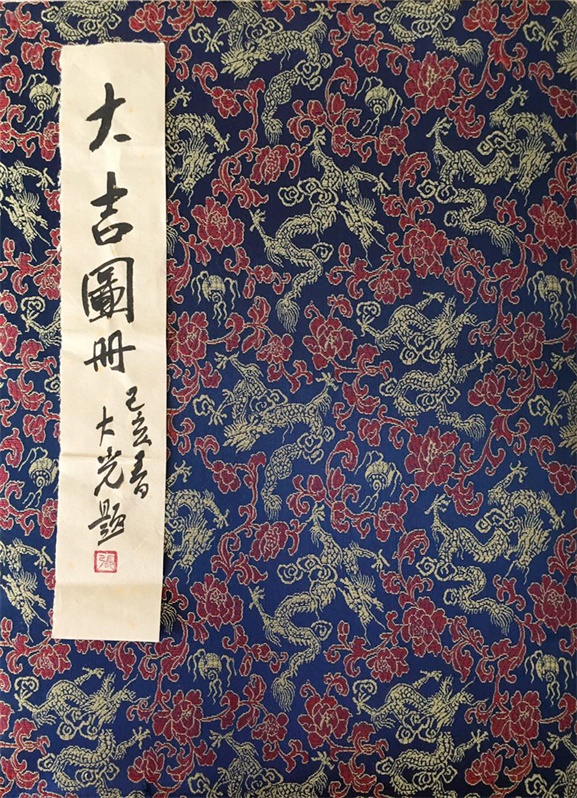 大吉圖册
己亥春
大光題
張